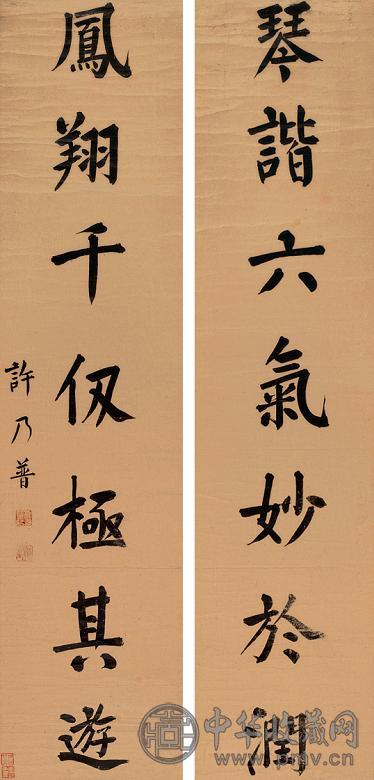 琴諧六氣妙於潤
鳳翔千仞極其遊
許乃普
中华收藏网